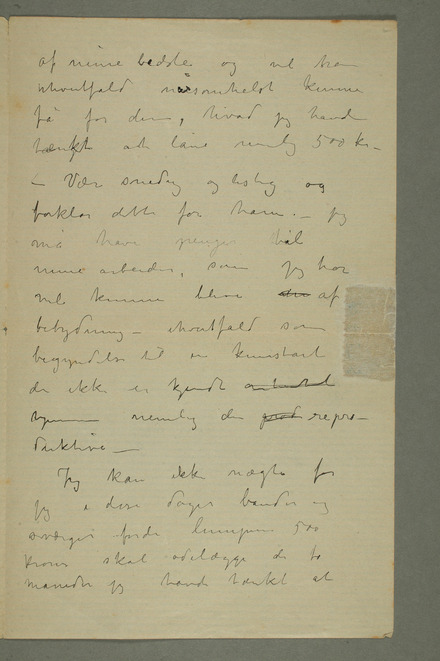 af mine bedste og vil han
ihvertfald nårsomhelst kunne
få for dem, hvad jeg havde
tænkt at låne nemlig 500 kr –
– Vær snedig og listig og
forklar dette for ham. – jeg
må have penger til
mine arbeider, som jeg tror
vil kunne blive af
betydning – ihvertfald som
begyndelse til en kunstart
der ikke er kjendt
nemlig den repro-
duktive –
Jeg kan ikke nægte for
jeg i disse dager bander og
sværger fordi lumpne 500
kroner skal ødelægge de to
måneder jeg havde tænkt at